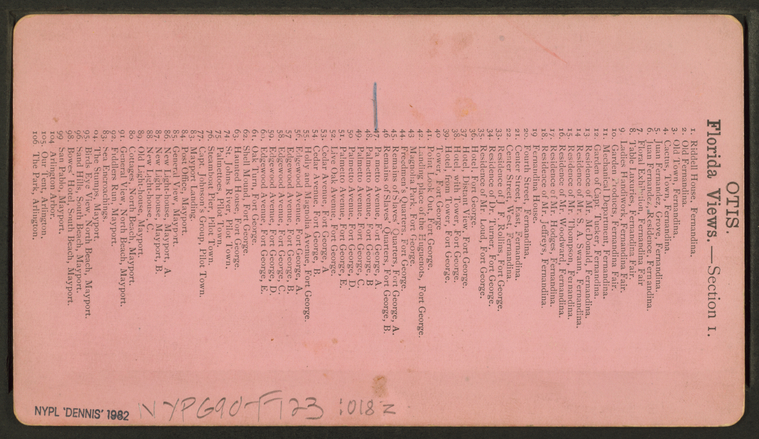 OTIS
Florida Views.—Section 1.
1. Riddell House, Fernandina.
2. Old Fernandina.
3. Old Town, Fernandina.
4. Cactus, Town, Fernandina.
5. Juan Fernandez, Grave, Fernandina.
6. Residence, Fernandina.
7. Floral Exhibition, Fernandina Fair
8. Table of Mixtures, Fernandina Fair.
9. Ladies Handwork, Fernandina Fair.
10. Garden Products, Fernandina Fair.
11. Mechanical Department, Fernandina.
12. Garden of Capt. Tucker, Fernandina.
13. Residence of Mr. Fernandina.
14. Residence of Mr. S. A. Swann, Fernandina.
15. Residence of Mr. Thompson, Fernandina.
16. Residence of Mr. Woodward, Fernandina.
17. Residence of Mr. Hodges, Fernandina.
18. Residence of Mr. Jeffreys, Fernandina.
19. Fernandina House.
20. Fourth Street, Fernandina.
21. Center Street, East, Fernandina.
22. Center Street, West, Fernandina.
33. Residence of J. F. Rollins, Fort George.
34. Residence of Mr. Fort George.
35. Residence of Mr. Loud, Fort George.
36. Hotel, Fort George.
37. Hotel, Fort George.
38. Hotel with Tower, Fort George.
39. Hotel Tower, Fort George.
40. Tower, Fort George
41. Point Look Out, Fort George.
42. Landing of Huguenots, Fort George.
43. Magnolia Park, Fort George.
44. Freedmen's Quarters, Fort George.
45. Remains of Slaves' Quarters, Fort George, A.
46. Remains of Slaves' Quarters, Fort George, B.
47. Palmetto Avenue, Fort George, A.
48. Palmetto Avenue, Fort George, B
49. Palmetto Avenue, Fort George, C.
50. Palmetto Avenue, Fort George, D.
51. Palmetto Avenue, Fort George, E.
52. Live Oak Avenue, Fort George.
53. Cedar Avenue, Fort George, A.
54. Cedar Avenue, Fort George, B.
55. Holly and Magnolia Avenue, Fort George.
56. Edgewood Avenue, Fort George, A.
57. Edgewood Avenue, Fort George, B.
58. Edgewood Avenue, Fort George, C.
59. Edgewood Avenue, Fort George, D.
60. Edgewood Avenue, Fort George, E.
61. Oak and Fern, Fort George.
62. Shell Mound, Fort George.
63. Haunted House, Fort George.
74. St. Johns River, Pilot Town.
75. Palmettoes, Pilot Town.
76. Steamer, Pilot Town.
77. Capt. Johnson's Group, Pilot Town.
83. Mayport Landing.
84. Post Office, Mayport.
85. General View, Mayport.
86. New Lighthouse, Mayport, A.
87. New Lighthouse, Mayport, B.
88. New Lighthouse, C.
89. Old Lighthouse, Mayport.
90. Cottages, North Beach, Mayport.
91. General View, North Beach, Mayport.
92. Folding Residence, Mayport.
93. Sea Encroachings.
94. The Stump, Mayport.
95. Birds Eye View, North Beach, Mayport.
96. Sand Hills, South Beach, Mayport.
98. Hotel, South Beach, Mayport.
99. San Pablo, Mayport.
104. Arlington Arbor.
105. Our Tent, Arlington.
106. The Park, Arlington.
NYPL 'DENNIS' 1982
NYPG90-F723 :018 z